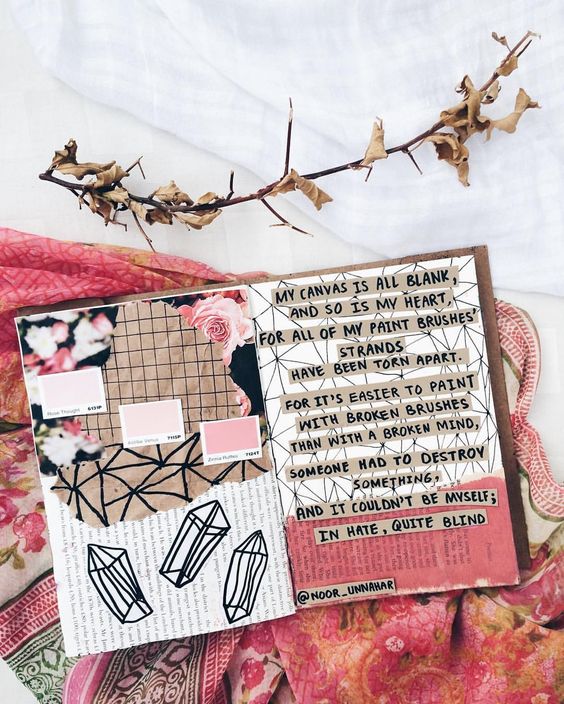 Rose Thought 6131P
Kohbe Venus 7115P
Zinnia Ruffles 7124T
MY CANVAS IS ALL BLANK,
AND SO IS MY HEART,
FOR ALL OF MY PAINT BRUSHES'
STRANDS
HAVE BEEN TORN APART.
FOR IT'S EASIER TO PAINT
WITH BROKEN BRUSHES
THAN WITH A BROKEN MIND,
SOMEONE HAD TO DESTROY
SOMETHING,
AND IT COULDN'T BE MYSELF;
IN HATE, QUITE BLIND
@NOOR_UNNAHAR